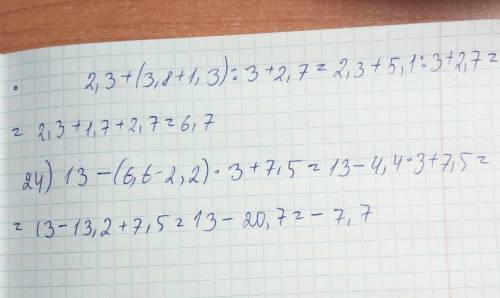 2,3+(3,8+1,3):3+2,7=2,3+5,1:3+2,7=
= 2,3+1,7+2,7=6,7
24) 13-(6,6-2,2)·3+7,5=13-4,4·3+7,5=
= 13-13,2+7,5=13-20,7=-7,7